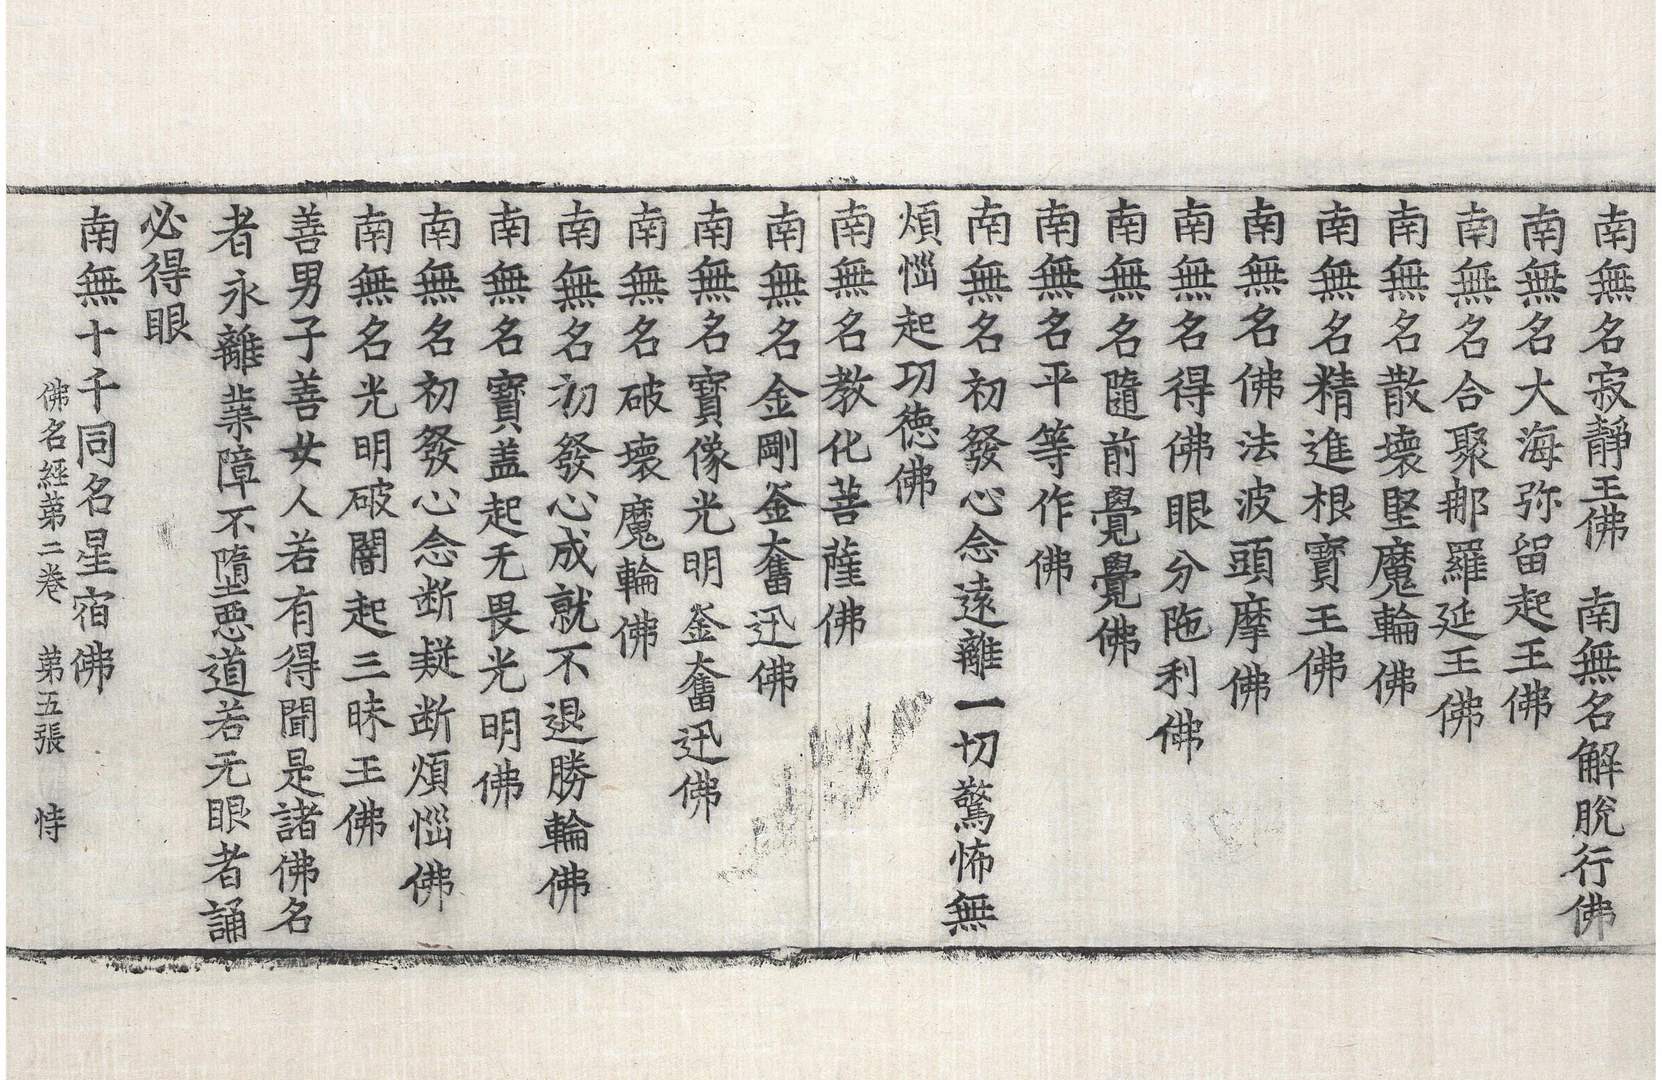 南無名寂靜王佛　南無名解脫行佛
南無名大海弥留起王佛
南無名合聚郍羅延王佛
南無名散壞堅魔輪佛
南無名精進根寶王佛
南無名佛法波頭摩佛
南無名得佛眼分陁利佛
南無名隨前覺覺佛
南無名平等作佛
南無名初發心念遠離一切驚怖無
煩惱起功德佛
南無名教化菩薩佛
南無名金剛釜奮迅佛
南無名寶像光明釜奮迅佛
南無名破壞魔輪佛
南無名初發心成就不退勝輪佛
南無名寶盖起无畏光明佛
南無名初發心念断疑断煩惱佛
南無名光明破闇起三昧王佛
善男子善女人若有得聞是諸佛名
者永離業障不墮惡道若无眼者誦
必得眼
南無十千同名星宿佛
佛名經第二卷　第五張　恃